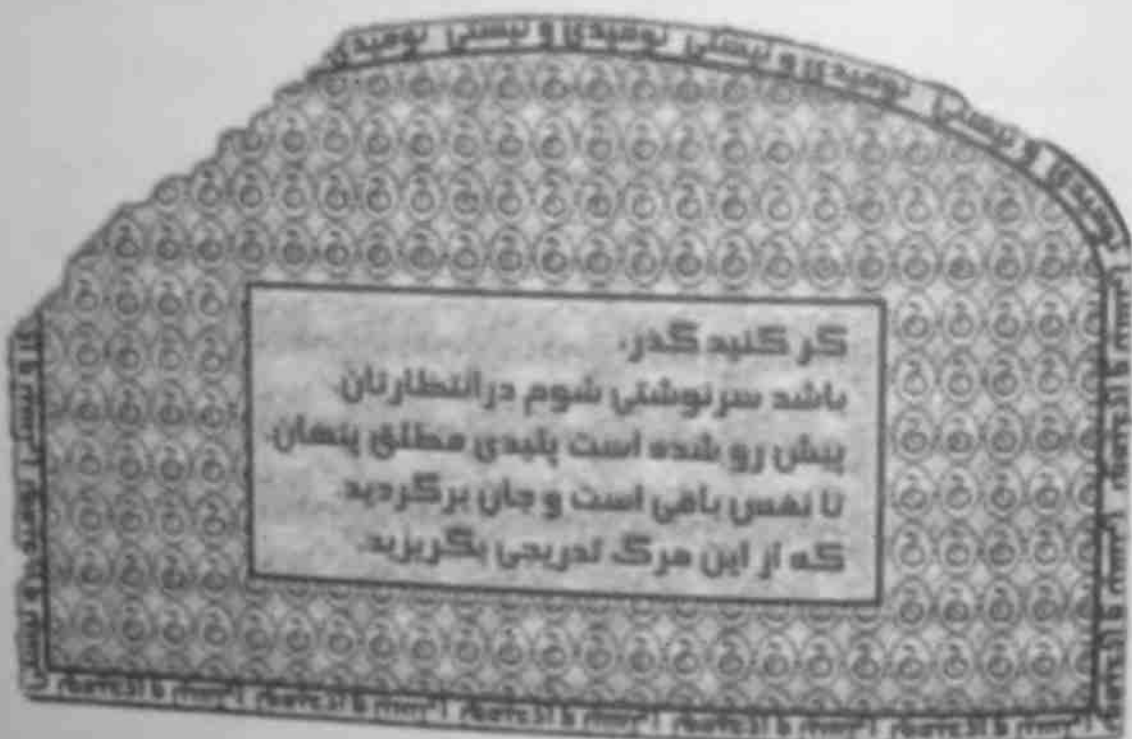 نومیدی و نیستی نومیدی و نیستی نومیدی و نیستی نومیدی و نیستی
گر کنید گذر،
باشد سرنوشتی شوم درانتظارتان.
پیش رو شده است پلیدی مطلق پنهان.
تا نفس باقی است و جان برگردید.
که از این مرگ تدریجی بگریزید.